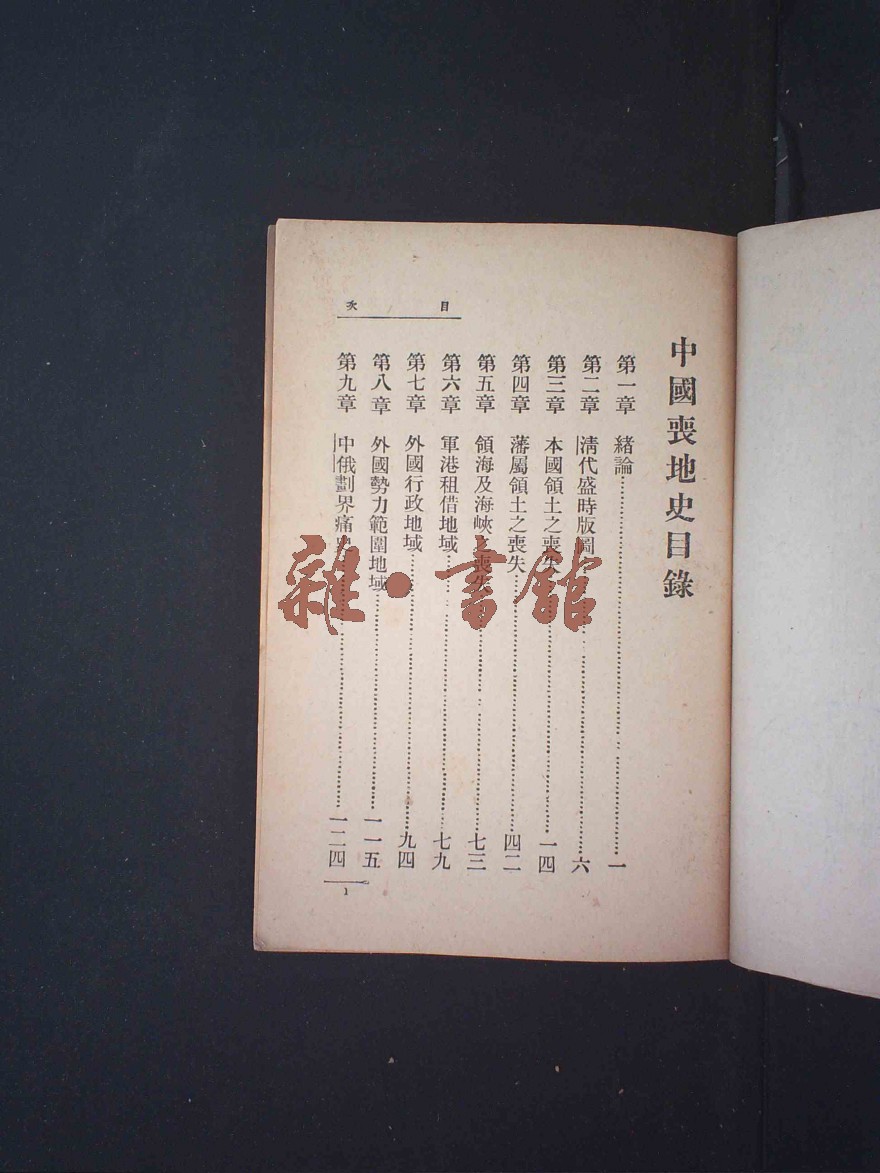 中國喪地史目錄
第一章 緒論……一
第二章 清代盛時版圖……六
第三章 本國領土之喪失……一四
第四章 藩屬領土之喪失……四二
第五章 領海及海峽之喪失……七三
第六章 軍港租借地域……七九
第七章 外國行政地域……九四
第八章 外國勢力範圍地域……一一五
第九章 中俄劃界痛……一二四
目次
1
雜·書館